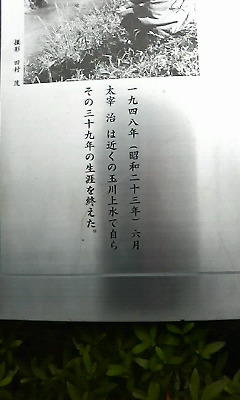 一九四八年（昭和二十三年）六月
太宰 治 は近くの玉川上水で自ら
その三十九年の生涯を終えた。
撮影 田村 茂